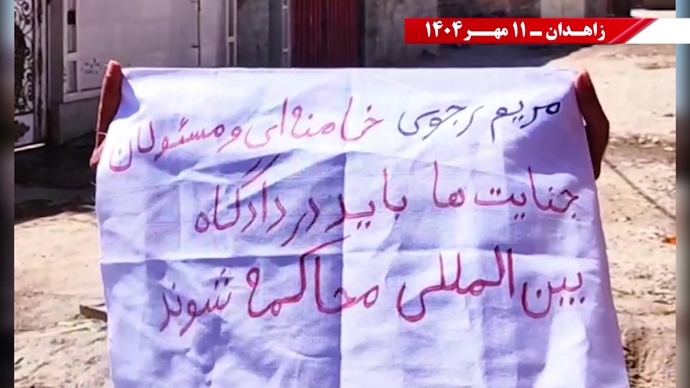 زاهدان – ۱۱ مهر ۱۴۰۴
مریم رجوی خامنه‌ای و مسئولان
جنایت ها باید در دادگاه
بین المللی محاکمه شوند